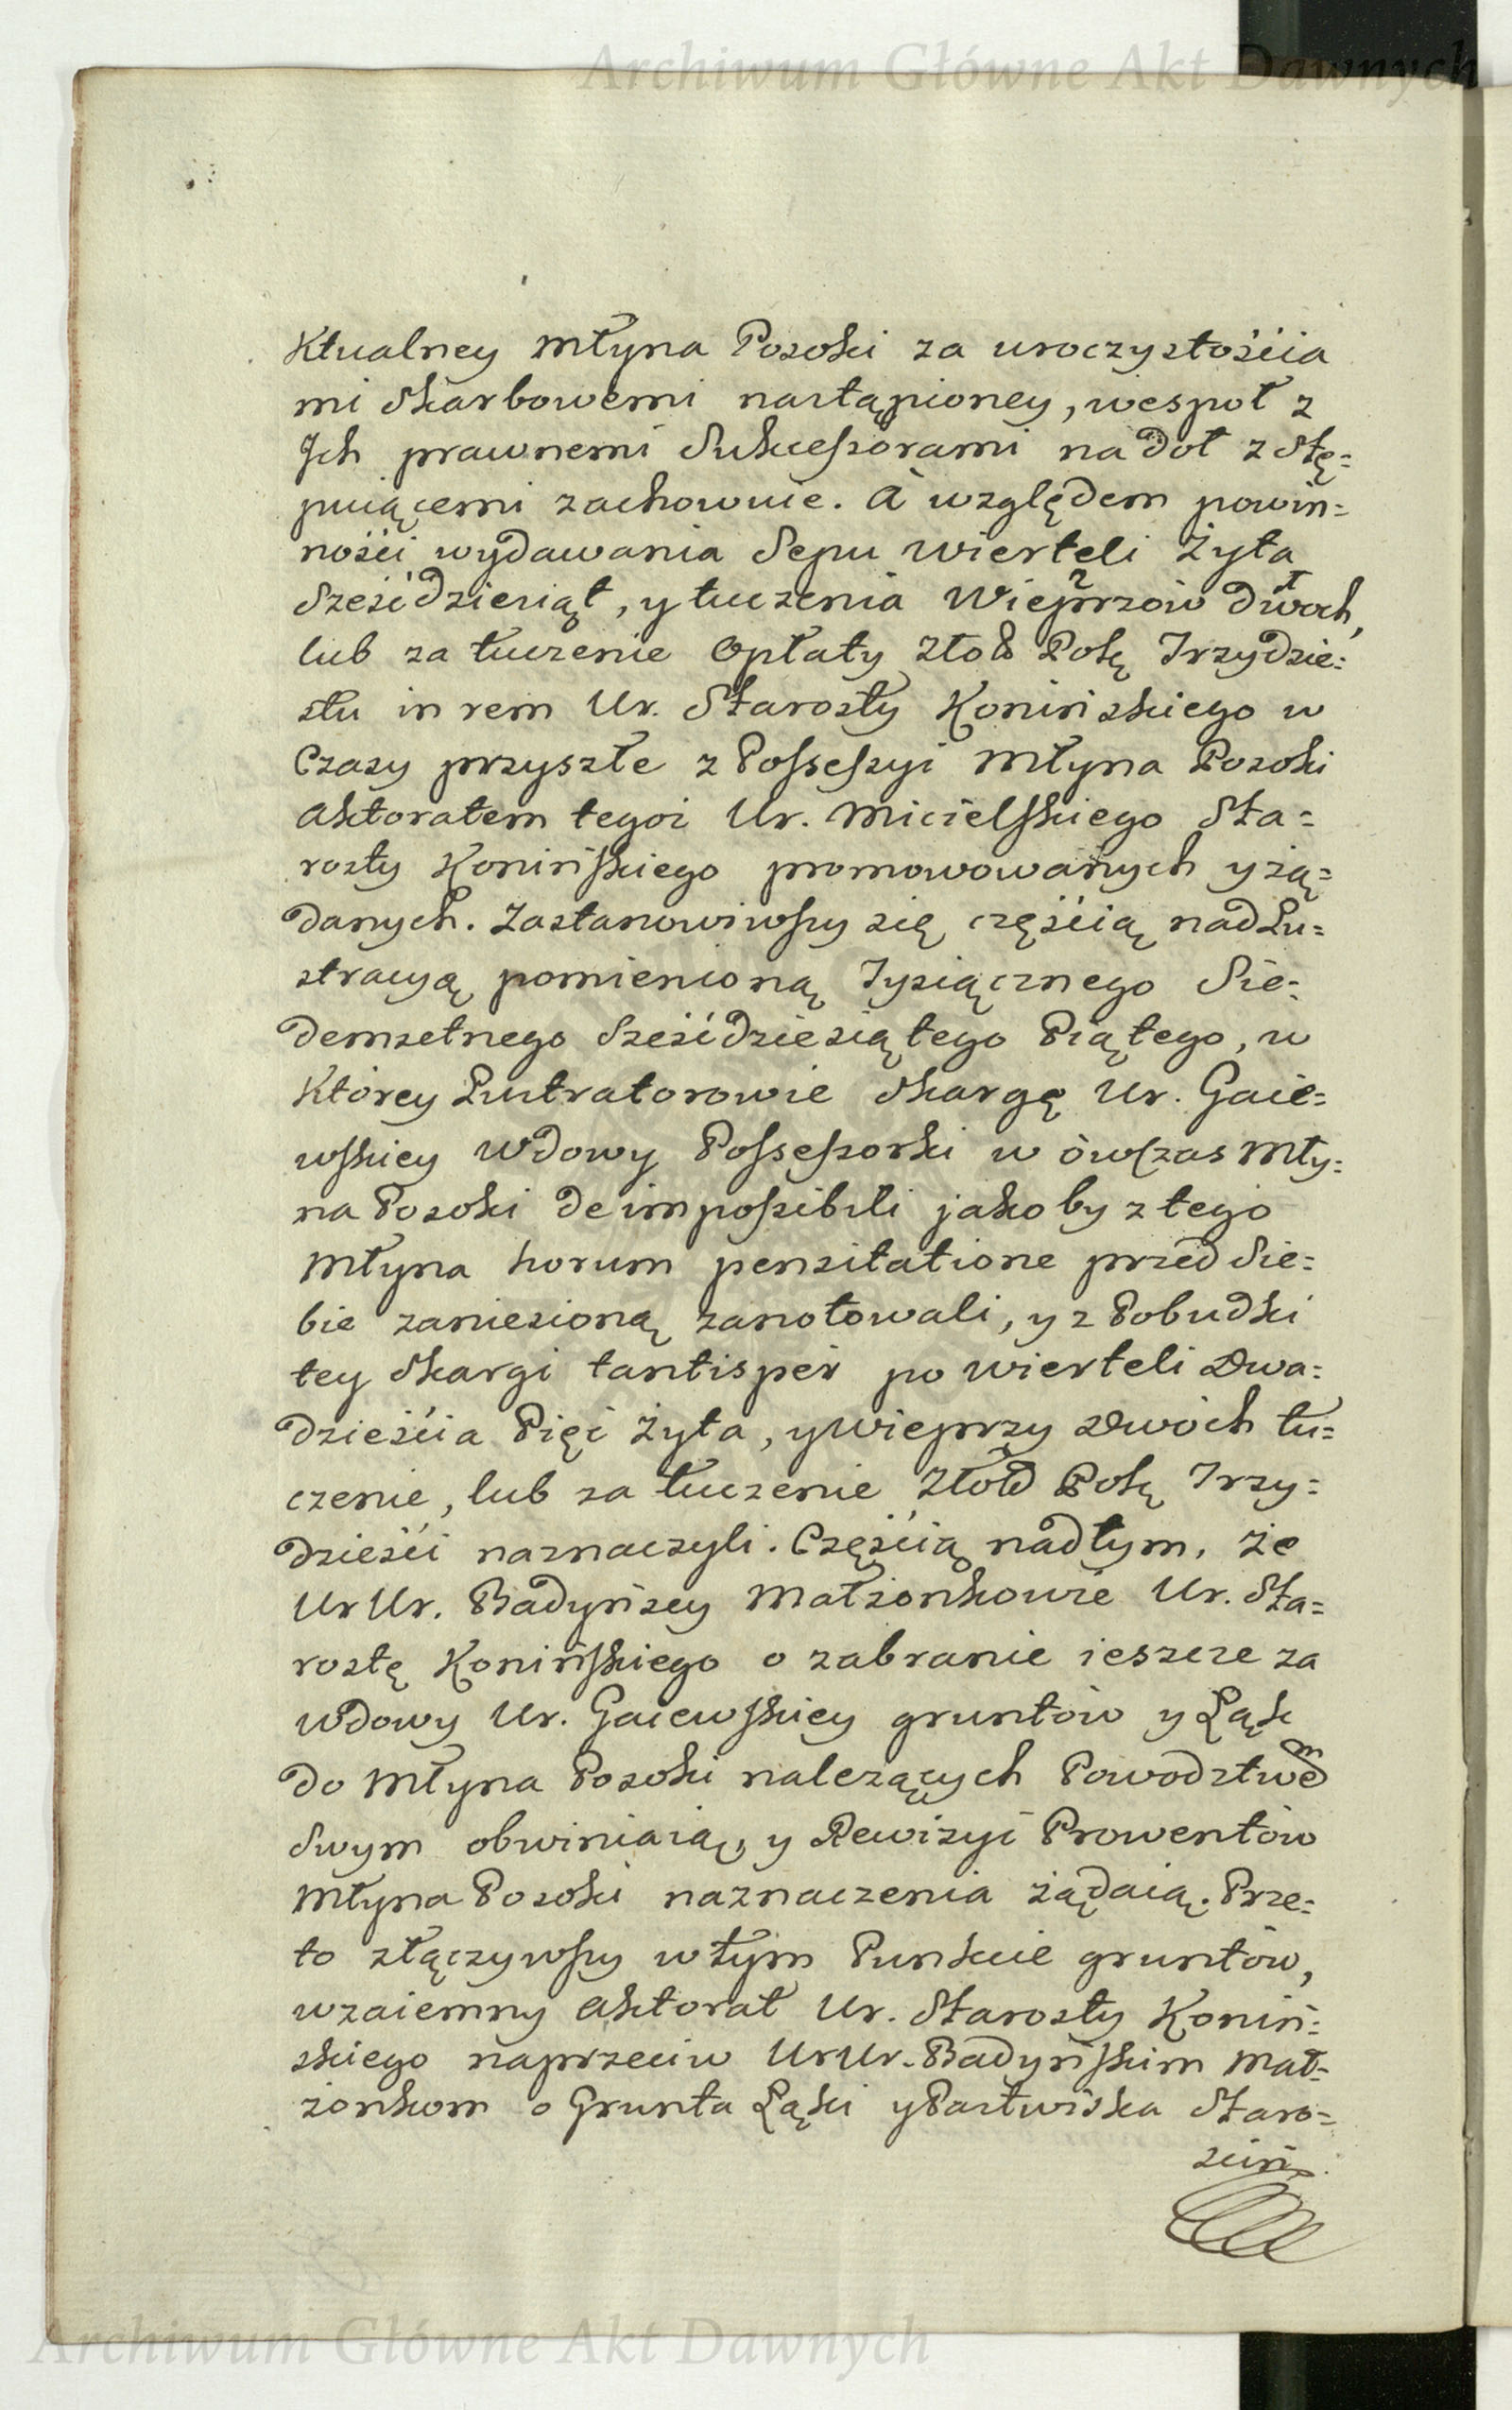 Archiwum Główne Akt Dawnych
Ktualney Młyna Posoki za uroczystościa
mi Skarbowemi nastąpioney, wespoł z
Ich prawnemi Sukcessorami nadoł zstę=
puiącemi zachowuie. A względem powin=
ności wydawania Sepu Wierteli Żyta
Sześćdziesiąt, y tuczenia Wieprzów dwoch,
lub za tuczenie Opłaty Złott Polę Trzydzie=
stu in rem Ur. Starosty Konińskiego w
Czasy przyszłe z Possessyi Młyna Posoki
Aktoratem tegoż Ur. Micielskiego Sta=
rosty Konińskiego promowowanych y żą=
danych. Zastanowiwszy się częścią nad Lu=
stracyą pomienioną Tysiącznego Sie=
demsetnego Sześćdziesiątego Piątego, w
Którey Lustratorowie Skargę Ur. Gaie=
wskiey Wdowy Possessorki w ówczas Mły=
na Posoki de impossibili jakoby z tego
Młyna horum pensitatione przed Sie=
bie zaniesioną zanotowali, y z Pobudki
tey Skargi tantisper po Wierteli Dwa=
dzieścia Pięć Żyta, y Wieprzy Dwóch tu=
czenie, lub za tuczenie Złotd Polę Trzy=
dzieści naznaczyli. Częścią nadtym, że
UrUr. Badyńscy Małżonkowie Ur. Sta=
rostę Konińskiego o zabranie ieszcze za
Wdowy Ur. Gaiewskiey gruntów y Łąk
do Młyna Posoki należących Powodztwem
Swym obwiniaią, y Rewizyi Prowentów
Młyna Posoki naznaczenia żądaią. Prze=
to złączywszy w tym Punkcie gruntów,
wzaiemny Aktorat Ur. Starosty Koniń=
skiego naprzeciw UrUr. Badyńskim Mał=
żonkom o Grunta Łąki y Pastwiska Staro=
sciń
Archiwum Główne Akt Dawnych